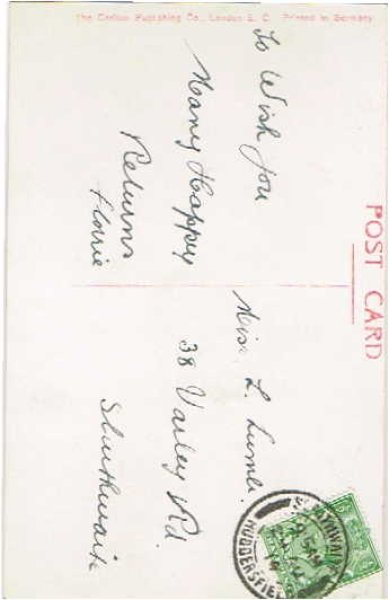 The Carlton Publishing Co., London E. C. Printed in Germany
POST CARD
To Wish you
Many Happy
Returns
Florrie
Miss L. Lumb.
38 Varley Rd.
Slaithwaite
SLAITHWAITE
9 15 AM
14
HUDDERSFIELD